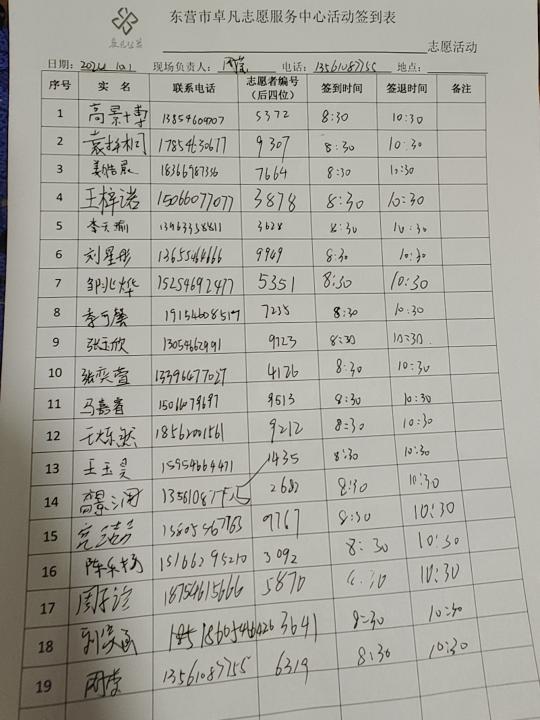 东营市卓凡志愿服务中心活动签到表
志愿活动
日期: 2024 10.1 现场负责人: 电话: 13561087755 地点:
序号 实 名 联系电话 志愿者编号(后四位) 签到时间 签退时间 备注
1 高景博 13854609707 5372 8:30 10:30
2 17854630677 9307 8:30 10:30
3 姜皓晨 18366987356 7664 8:30 10:30
4 王梓诺 15066077077 3878 8:30 10:30
5 李天瑜 13963358811 3628 8:30 10:30
6 刘星彤 13655466666 9949 8:30 10:30
7 邹兆烨 15254692477 5351 8:30 10:30
8 李可馨 19154608517 7235 8:30 10:30
9 张玉欣 13054662991 9723 8:30 10:30
10 张奕萱 13396477027 4126 8:30 10:30
11 马嘉睿 15066079697 9513 8:30 10:30
12 18562001561 9212 8:30 10:30
13 王玉昊 15954664471 1435 8:30 10:30
14 2682 8:30 10:30
15 15805467763 9767 8:30 10:30
16 15166295210 3092 8:30 10:30
17 18754615666 5870 10:30
18 3641 8:30 10:30
19 13561087755 6319 8:30 10:30